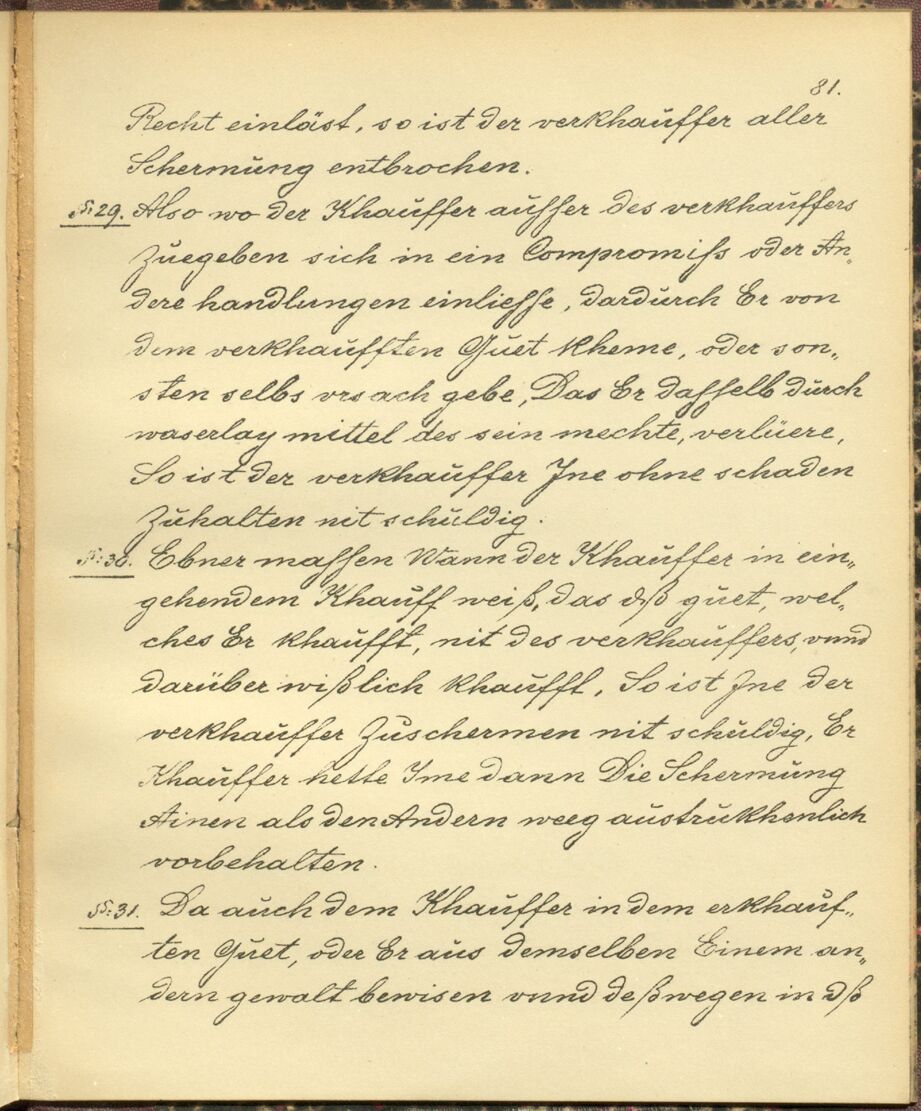 81.
Recht einläst, so ist der verkhauffer aller
Schermung entbrochen.
§:29. Also wo der Khauffer ausser des verkhauffers
Zuegeben sich in ein Compromiss oder An„
dere handlungen einliesse, dardurch Er von
dem verkhaufften Guet kheme, oder son„
sten selbs vrsach gebe, Das Er dasselb durch
waserlay mittel des sein mechte, verlüere,
So ist der verkhauffer Jne ohne schaden
Zuhalten nit schuldig.
§:30. Ebner massen Wann der Khauffer in ein„
gehendem Khauff weiß, das dß guet, wel„
ches Er khaufft, nit des verkhauffers, vnnd
darüber wißlich khaufft, So ist Jne der
verkhauffer Zuschermen nit schuldig, Er
Khauffer hette Jme dann Die Schermung
Ainen als den Andern weeg austrukhenlich
vorbehalten.
§:31. Da auch dem Khauffer in dem erkhauf„
ten Guet, oder Er aus demselben Einem an„
dern gewalt bewisen vnnd deßwegen in dß